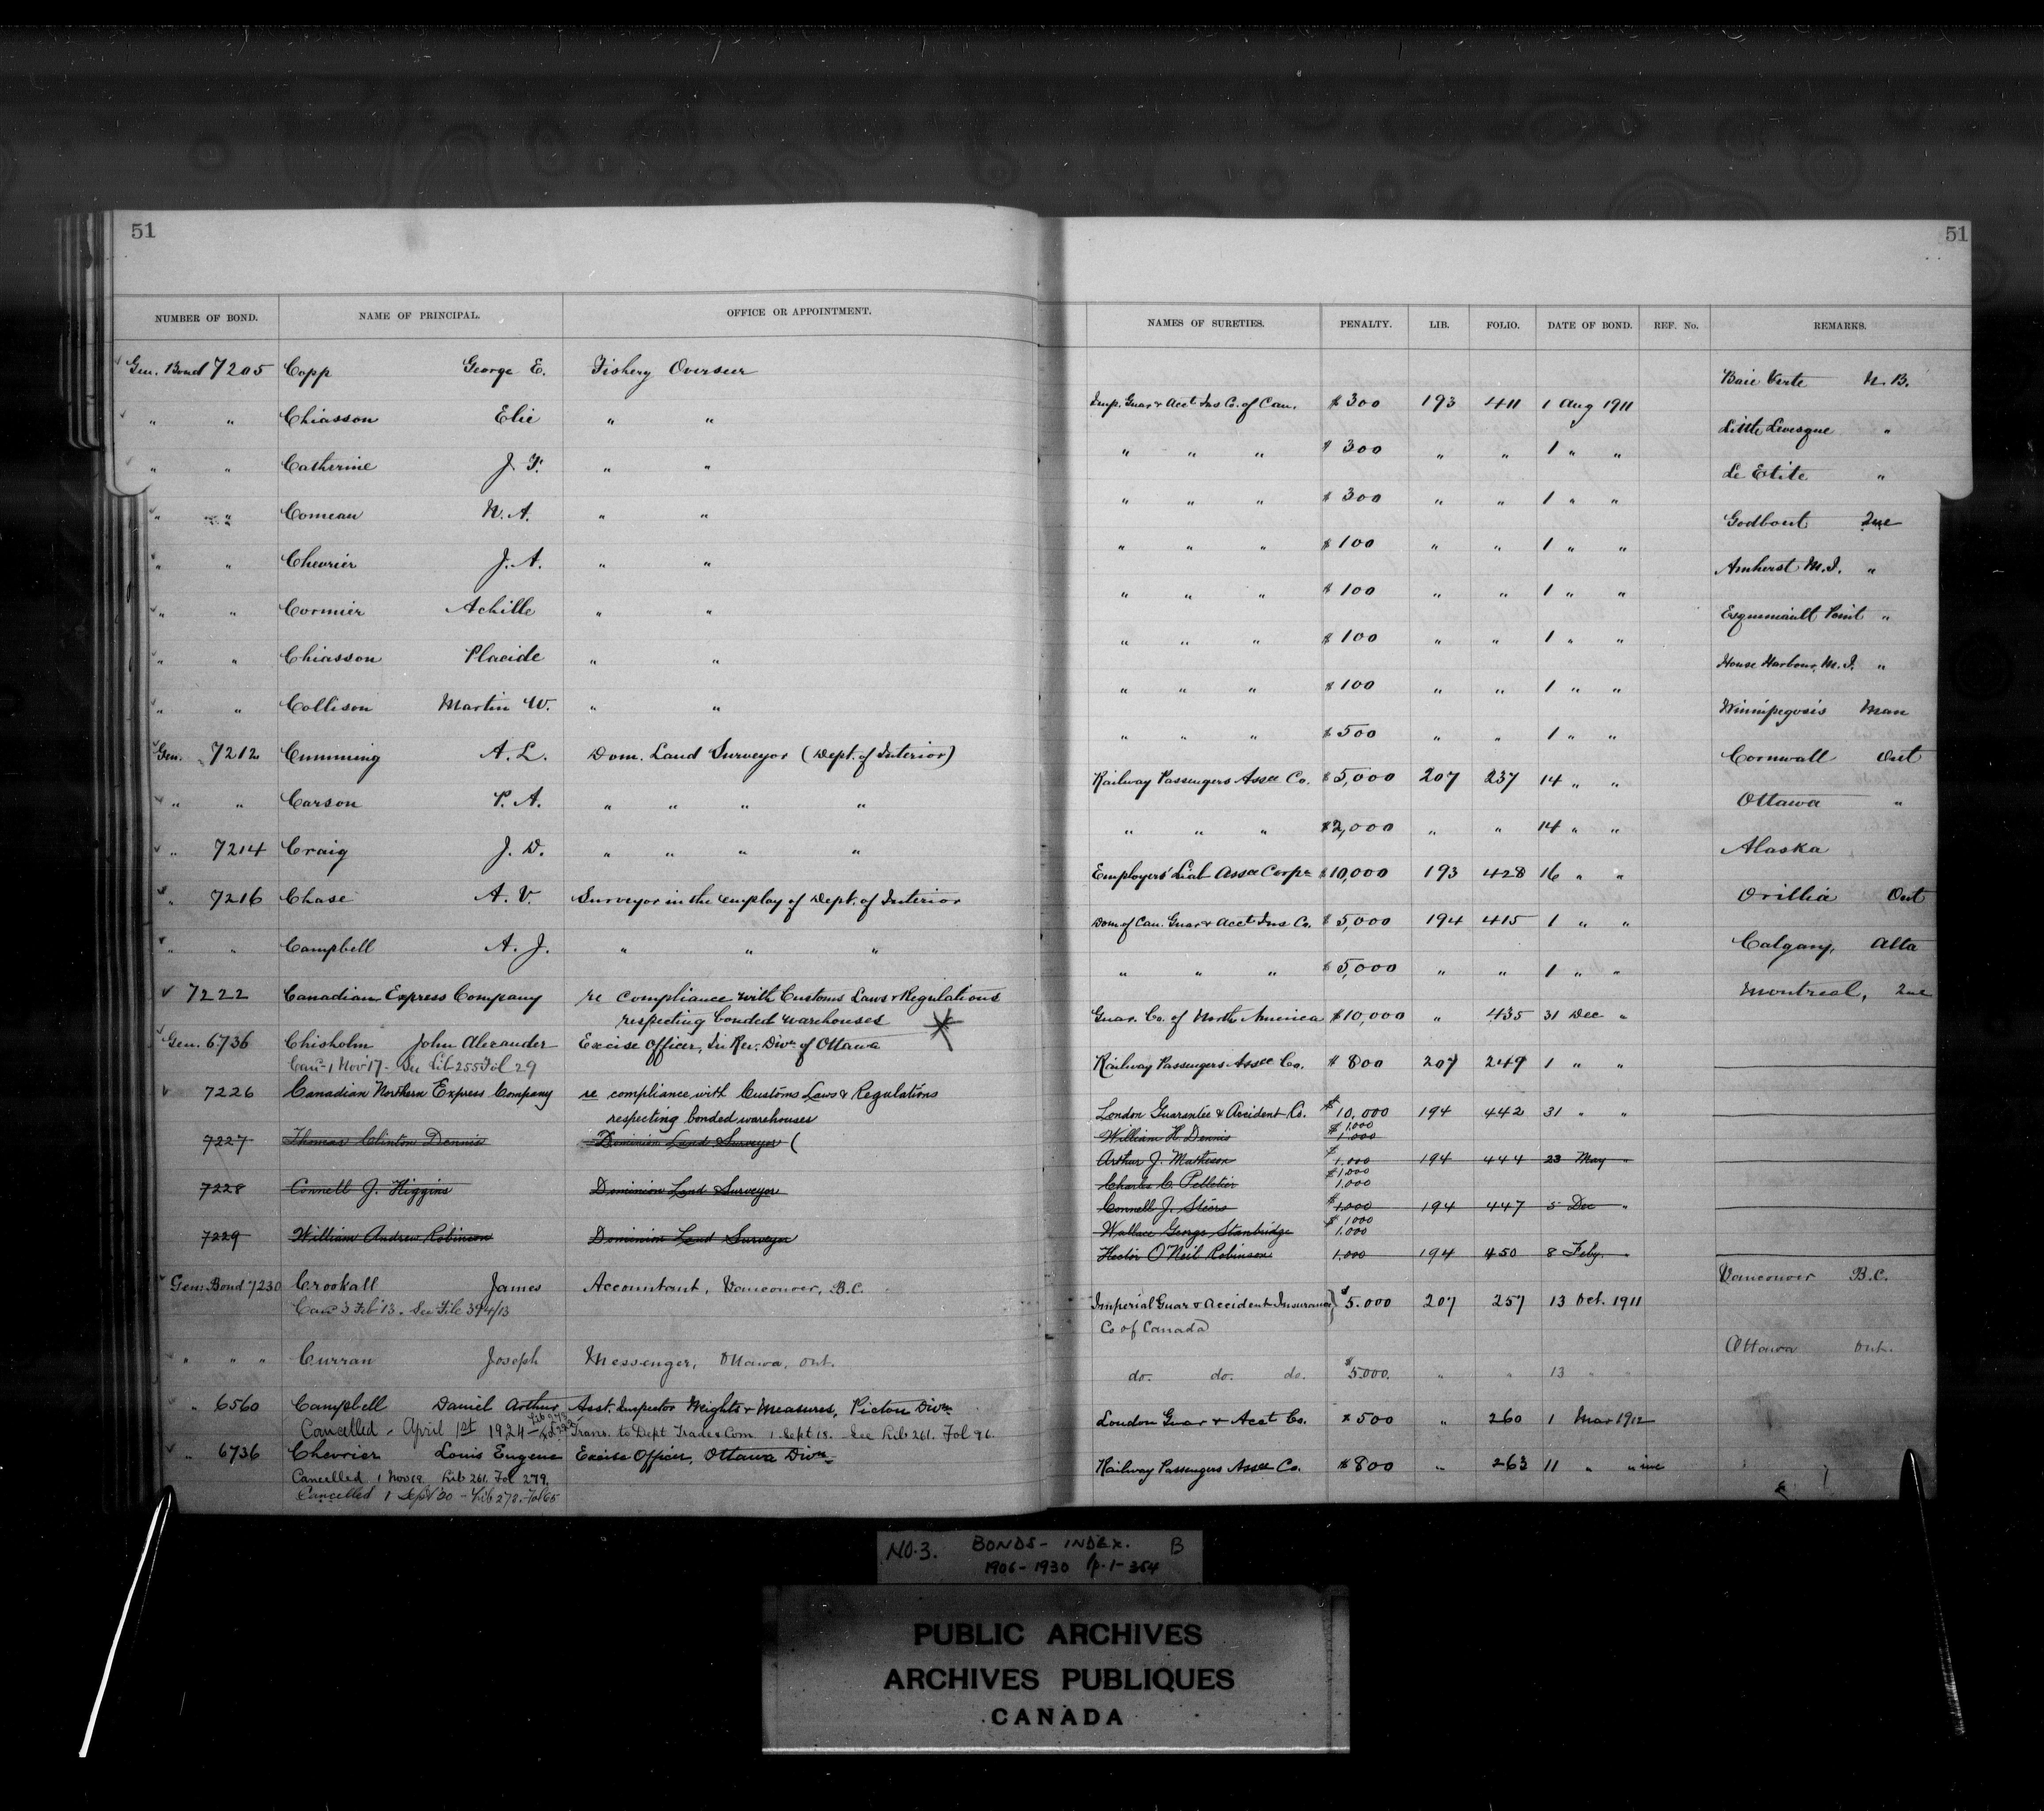 51
NUMBER OF BOND. NAME OF PRINCIPAL. OFFICE OR APPOINTMENT.
Gen. Bond 7205 Copp George E. Fishery Overseer
" " Chiasson Elie " "
" " Catherine J. F. " "
" " Comeau N. A. " "
" " Chevrier J. A. " "
" " Cormier Achille " "
" " Chiasson Placide " "
" " Collison Martin W. " "
Gen. 7212 Cumming A. L. Dom. Land Surveyor (Dept. of Interior)
" " Carson P. A. " " " "
" 7214 Craig J. D. " " " "
" 7216 Chase A. V. Surveyor in the employ of Dept. of Interior
" " Campbell A. J. " " "
7222 Canadian Express Company re compliance with Customs Laws & Regulations
respecting bonded warehouses
Gen. 6736 Chisholm John Alexander Excise Officer, In. Rev. Divn of Ottawa
Canc 1 Nov 17 - See Lib 255 Fol 29
7226 Canadian Northern Express Company re compliance with Customs Laws & Regulations
respecting bonded warehouses
7227 Thomas Clinton Dennis Dominion Land Surveyor (
7228 Connell J. Higgins Dominion Land Surveyor
7229 William Andrew Robinson Dominion Land Surveyor
Gen. Bond 7230 Crookall James Accountant, Vancouver, B.C.
Canc 3 Feb '13. See File 394/13
" " " Curran Joseph Messenger, Ottawa, Ont.
" 6560 Campbell Daniel Arthur Asst. Inspector Weights & Measures, Picton Divn
Cancelled - April 1st 1924 - Trans. to Dept Trade & Com. 1 Sept 18. See Lib 261. Fol 96.
" 6736 Chevrier Louis Eugene Excise Officer, Ottawa Divn
Cancelled 1 Nov 18. Lib 261. Fol 279.
Cancelled 1 Sept '20 - Lib 272. Fol 65
51
NAMES OF SURETIES. PENALTY. LIB. FOLIO. DATE OF BOND. REF. No. REMARKS.
Baie Verte N. B.
Imp. Guar & Acct Ins Co. of Can. $300 193 411 1 Aug 1911
Little Levesque "
" " " $300 " " 1 " "
Le Etite "
" " " $300 " " 1 " "
Godbout Que
" " " $100 " " 1 " "
Amherst M.I. "
" " " $100 " " 1 " "
Esquimiault Point "
" " " $100 " " 1 " "
House Harbour, M.I. "
" " " $100 " " 1 " "
Winnipegosis Man
" " " $500 " " 1 " "
Cornwall Ont
Railway Passengers Assce Co. $5,000 207 237 14 " "
Ottawa "
" " " $2,000 " " 14 " "
Alaska
Employers' Liab Assce Corpn $10,000 193 428 16 " "
Orillia Ont
Dom of Can. Guar & Acct Ins Co. $5,000 194 415 1 " "
Calgary, Alta
" " " $5,000 " " 1 " "
Montreal, Que
Guar. Co. of North America $10,000 " 435 31 Dec "
Railway Passengers Assce Co. $800 207 249 1 " "
London Guarantee & Accident Co. $10,000 194 442 31 " "
William H. Dennis $1,000 1,000
Arthur J. Matheson $1,000 194 444 23 May "
Charles C. Pelletier $1,000 1,000
Connell J. Steers $1,000 194 447 5 Dec "
Wallace George Stanbridge $1,000 1,000
Hector O'Neil Robinson 1,000 194 450 8 Feby. "
Vancouver B.C.
Imperial Guar & Accident Insurance } $5.000 207 257 13 Oct. 1911
Co of Canada
Ottawa Ont.
do. do. do. $5000. " " 13 " "
London Guar & Acct Co. $500 " 260 1 Mar 1912
Railway Passengers Assce Co. $800 " 263 11 " "
NO. 3. BONDS - INDEX. B
1906 - 1930 p. 1 - 364
PUBLIC ARCHIVES
ARCHIVES PUBLIQUES
CANADA